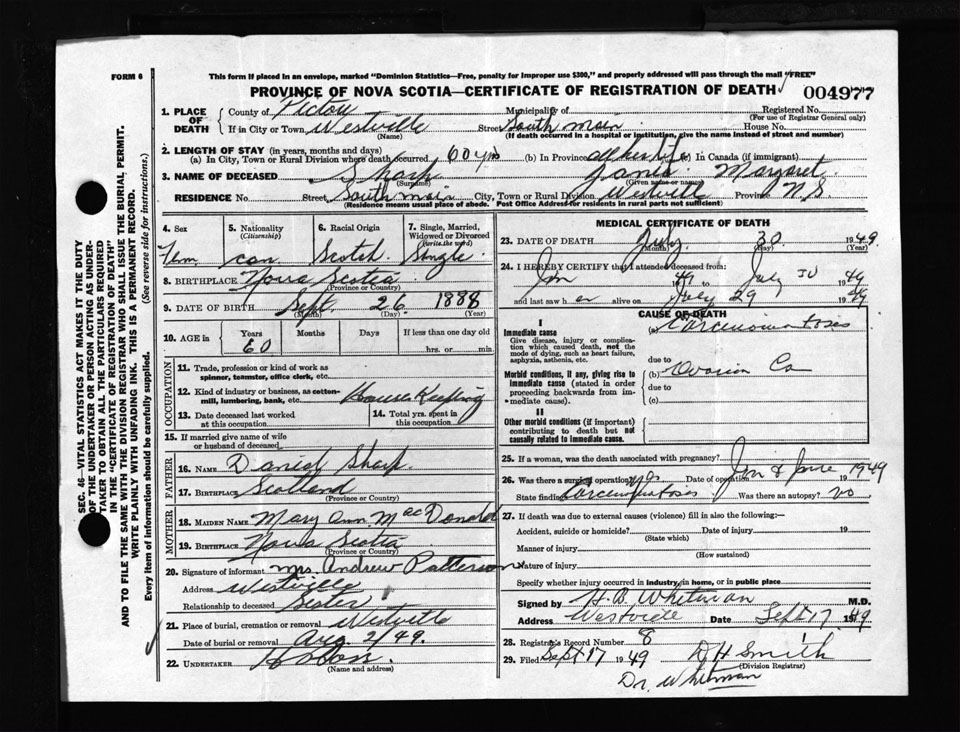 FORM 6
This form if placed in an envelope, marked "Dominion Statistics—Free, penalty for improper use $300," and properly addressed will pass through the mail "FREE"
PROVINCE OF NOVA SCOTIA—CERTIFICATE OF REGISTRATION OF DEATH
004977
1. PLACE OF DEATH
County of Pictou Municipality of Registered No.
(For use of Registrar General only)
If in City or Town Westville Street South main House No.
(Name) (If death occurred in a hospital or institution, give the name instead of street and number)
2. LENGTH OF STAY (in years, months and days)
(a) In City, Town or Rural Division where death occurred 60 yrs (b) In Province all her life (c) In Canada (if immigrant)
3. NAME OF DECEASED Sharp Margaret
(Surname) (Given name or names)
RESIDENCE No. Street South main City, Town or Rural Division Westville Province N.S.
(Residence means usual place of abode. Post Office Address for residents in rural parts not sufficient)
4. Sex 5. Nationality (Citizenship) 6. Racial Origin 7. Single, Married, Widowed or Divorced (write the word)
Fem can. Scotch Single
8. BIRTHPLACE Nova Scotia
(Province or Country)
9. DATE OF BIRTH Sept. 26 1888
(Month) (Day) (Year)
10. AGE in Years Months Days If less than one day old
60 hrs. or min.
OCCUPATION
11. Trade, profession or kind of work as spinner, teamster, office clerk, etc.
12. Kind of industry or business, as cotton-mill, lumbering, bank, etc. House Keeping
13. Date deceased last worked at this occupation
14. Total yrs. spent in this occupation
15. If married give name of wife or husband of deceased
FATHER
16. NAME Daniel Sharp
17. BIRTHPLACE Scotland
(Province or Country)
MOTHER
18. MAIDEN NAME Mary Ann MacDonald
19. BIRTHPLACE Nova Scotia
(Province or Country)
20. Signature of informant Mrs. Andrew Patterson
Address Westville
Relationship to deceased Sister
21. Place of burial, cremation or removal Westville
Date of burial or removal Aug 2/49.
22. UNDERTAKER
(Name and address)
MEDICAL CERTIFICATE OF DEATH
23. DATE OF DEATH July 30 1949
(Month) (Day) (Year)
24. I HEREBY CERTIFY that I attended deceased from:
Jan 49 July 30 49
and last saw her alive on July 29 1949
CAUSE OF DEATH
I
Immediate cause
Give disease, injury or complication which caused death, not the mode of dying, such as heart failure, asphyxia, asthenia, etc.
(a) Carcinomatosis
due to
Morbid conditions, if any, giving rise to immediate cause (stated in order proceeding backwards from immediate cause).
(b) Ovarian Ca
due to
(c)
II
Other morbid conditions (if important) contributing to death but not causally related to immediate cause.
25. If a woman, was the death associated with pregnancy?
26. Was there a surgical operation? Yes Date of operation Jan & June 1949
State findings Carcinomatosis Was there an autopsy? no
27. If death was due to external causes (violence) fill in also the following:—
Accident, suicide or homicide? Date of injury 19
(State which)
Manner of injury
(How sustained)
Nature of injury
Specify whether injury occurred in industry, in home, or in public place
Signed by H.B. Whitman M.D.
Address Westville Date Sept 17 1949
28. Registrar's Record Number 8
29. Filed Sept 17 1949 D H Smith
(Division Registrar)
Dr. Whitman
SEC. 46—VITAL STATISTICS ACT MAKES IT THE DUTY
OF THE UNDERTAKER OR PERSON ACTING AS UNDER-
TAKER TO OBTAIN ALL THE PARTICULARS REQUIRED
IN THE "CERTIFICATE OF REGISTRATION OF DEATH"
AND TO FILE THE SAME WITH THE DIVISION REGISTRAR WHO SHALL ISSUE THE BURIAL PERMIT.
WRITE PLAINLY WITH UNFADING INK. THIS IS A PERMANENT RECORD.
Every item of information should be carefully supplied. (See reverse side for instructions.)